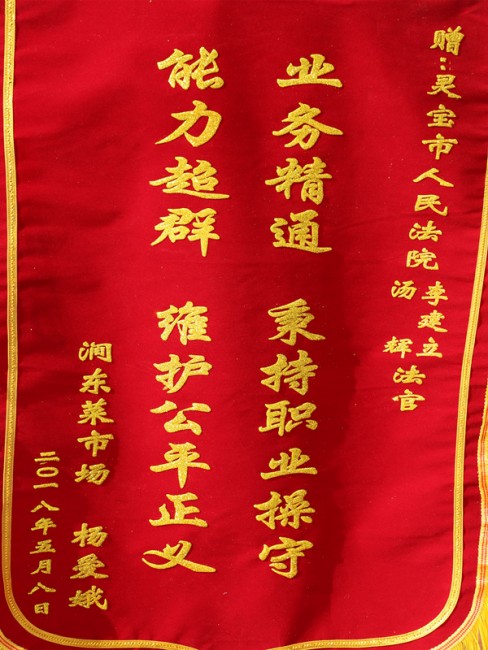 赠：灵宝市人民法院 李建立 汤辉 法官
业务精通 秉持职业操守
能力超群 维护公平正义
涧东菜市场 杨爱娥
二〇一八年五月八日